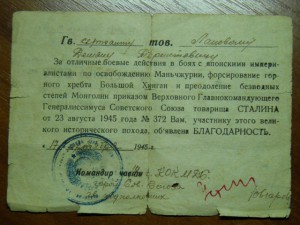 Гв. сержанту тов. Лановому
За отличные боевые действия в боях с японскими импери-
алистами по освобождению Маньчжурии, форсирование гор-
ного хребта Большой Хинган и преодоление безводных
степей Монголии приказом Верховного Главнокомандующего
Генералиссимуса Советского Союза товарища СТАЛИНА
от 23 августа 1945 года № 372 Вам, участнику этого вели-
кого исторического похода, объявлена БЛАГОДАРНОСТЬ.
1945 г.
Командир части